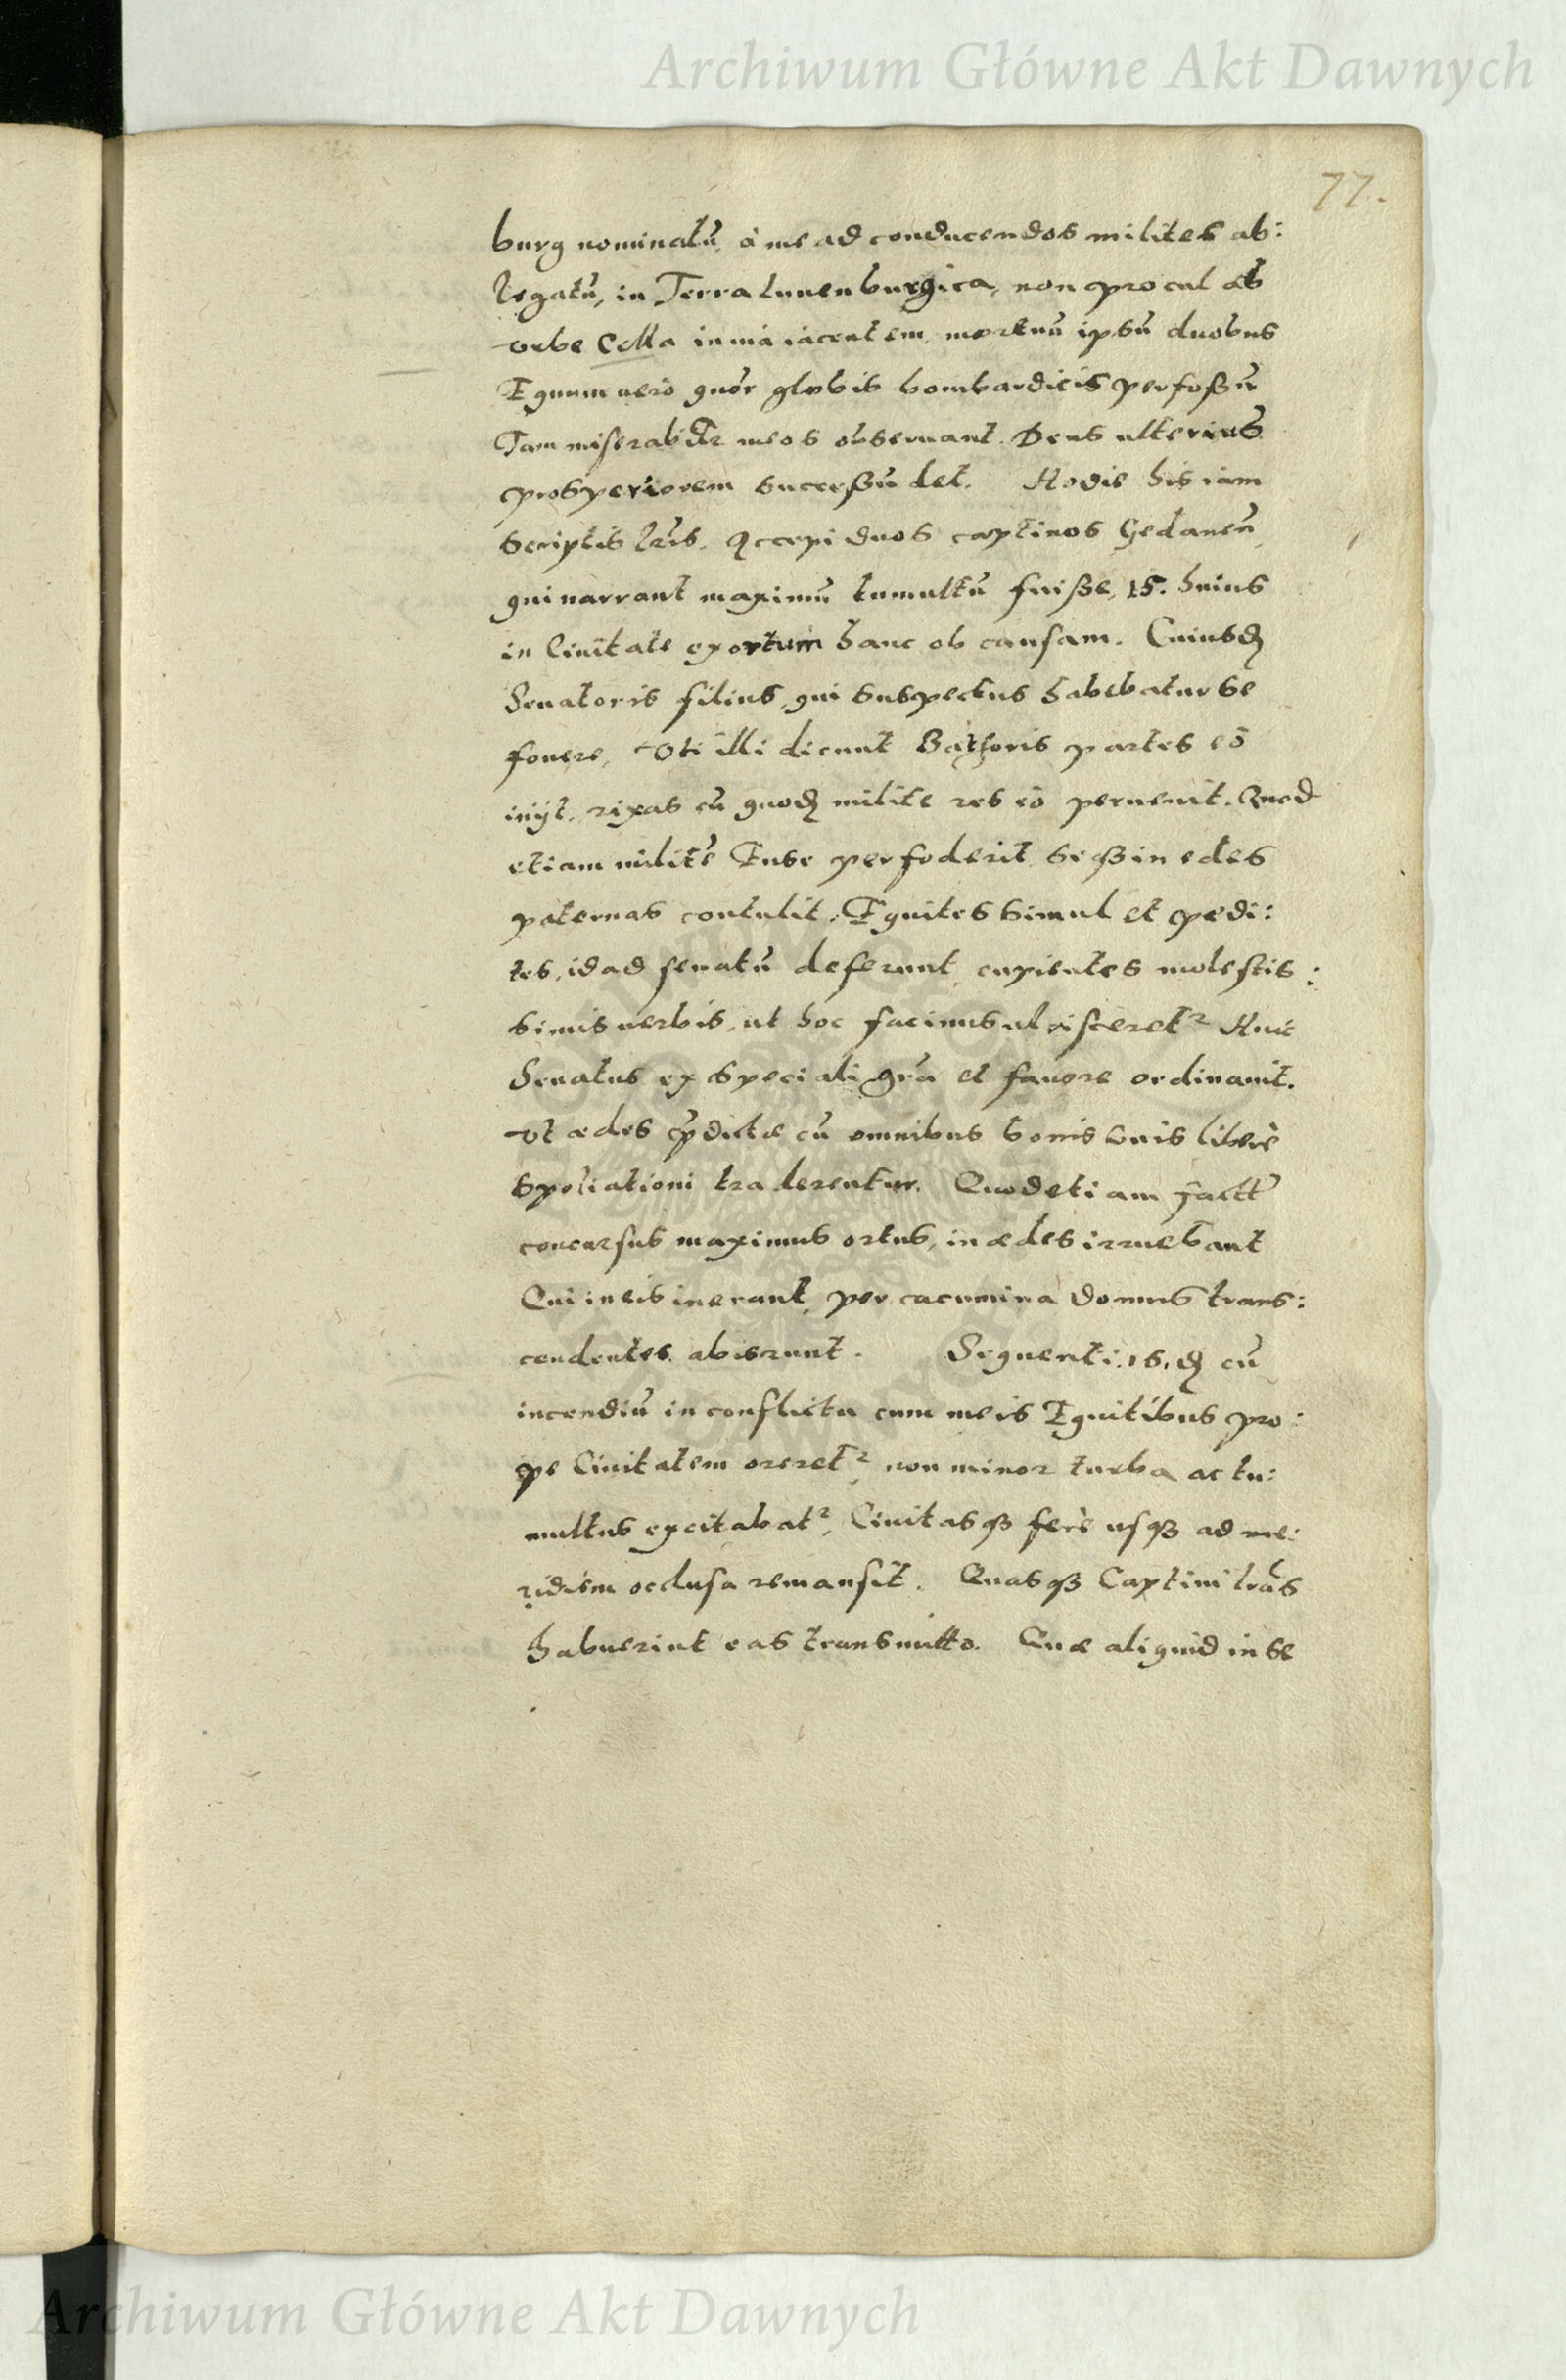 Archiwum Główne Akt Dawnych
77.
burg nominatū, à me ad conducendos milites ab:
legatū, in Terra Lunenburgica, non procul ab
vrbe Cella in uia iacentem, mortuū ipsū duobus
Equum uero quōr globis bombardicis perfoßū
Tam miserabilr meos obseruant. Deus ulterius
prosperiorem succeßū det. Hodie his iam
scriptis lrīs. Accepi duos captiuos Gedanen̄,
qui narrant maximū tumultū fuiße, 15. huius
in Ciuitate exortum hanc ob causam. Cuiusdā
Senatoris filius, qui suspectus habebatur se
fouere, Vti illi dicunt Bathoris partes eō
inijt, rixas cū quodā milite res eō peruenit. Quod
etiam militē Ense perfoderit seqꝫ in edes
paternas contulit. Equites simul et pedi:
tes, id ad senatū deferunt, cupientes molestis:
simis uerbis, ut hoc facinus ulcisceretr Huic
Senatus ex speciali grā et fauore ordinauit.
Vt ædes p̄dictæ cū omnibus bonis suis liberè
spoliationi traderentur. Quod etiam factū
concursus maximus ortus, in ædes irruebant
Qui in eis inerant, per cacumina domus trans:
cendentes abierunt. Sequenti. 16. cū
incendiū in conflictu cum meis Equitibus pro:
pe Ciuitatem oreretr, non minor turba ac tu:
multus excitabatr, Ciuitasqꝫ ferè usqꝫ ad me:
ridiem occlusa remansit. Quasqꝫ Captiui lrās
habuerint eas transmitto. Quæ aliquid in se
Archiwum Główne Akt Dawnych